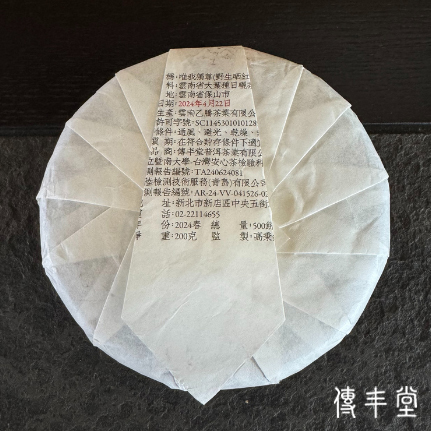 稱:唯我獨尊(野生晒紅
料:雲南省大葉種日曬茶
地:雲南省保山市
日期:2024年4月22日
生產:雲南乙騰茶業有限公
許可字號:SC1145301010128
條件:通風、避光、乾燥、
期:在符合貯存條件下適
商:傳丰堂普洱茶業有限公
立暨南大學-台灣安心茶檢驗科
測報告編號:TA240624081
檢測技術服務(青島)有限公
測報告編號:AR-24-VV-041526-0
址:新北市新店區中央五街
話:02-22114655
份:2024春 總 量:500餅
重:200克 監 製:
傳丰堂